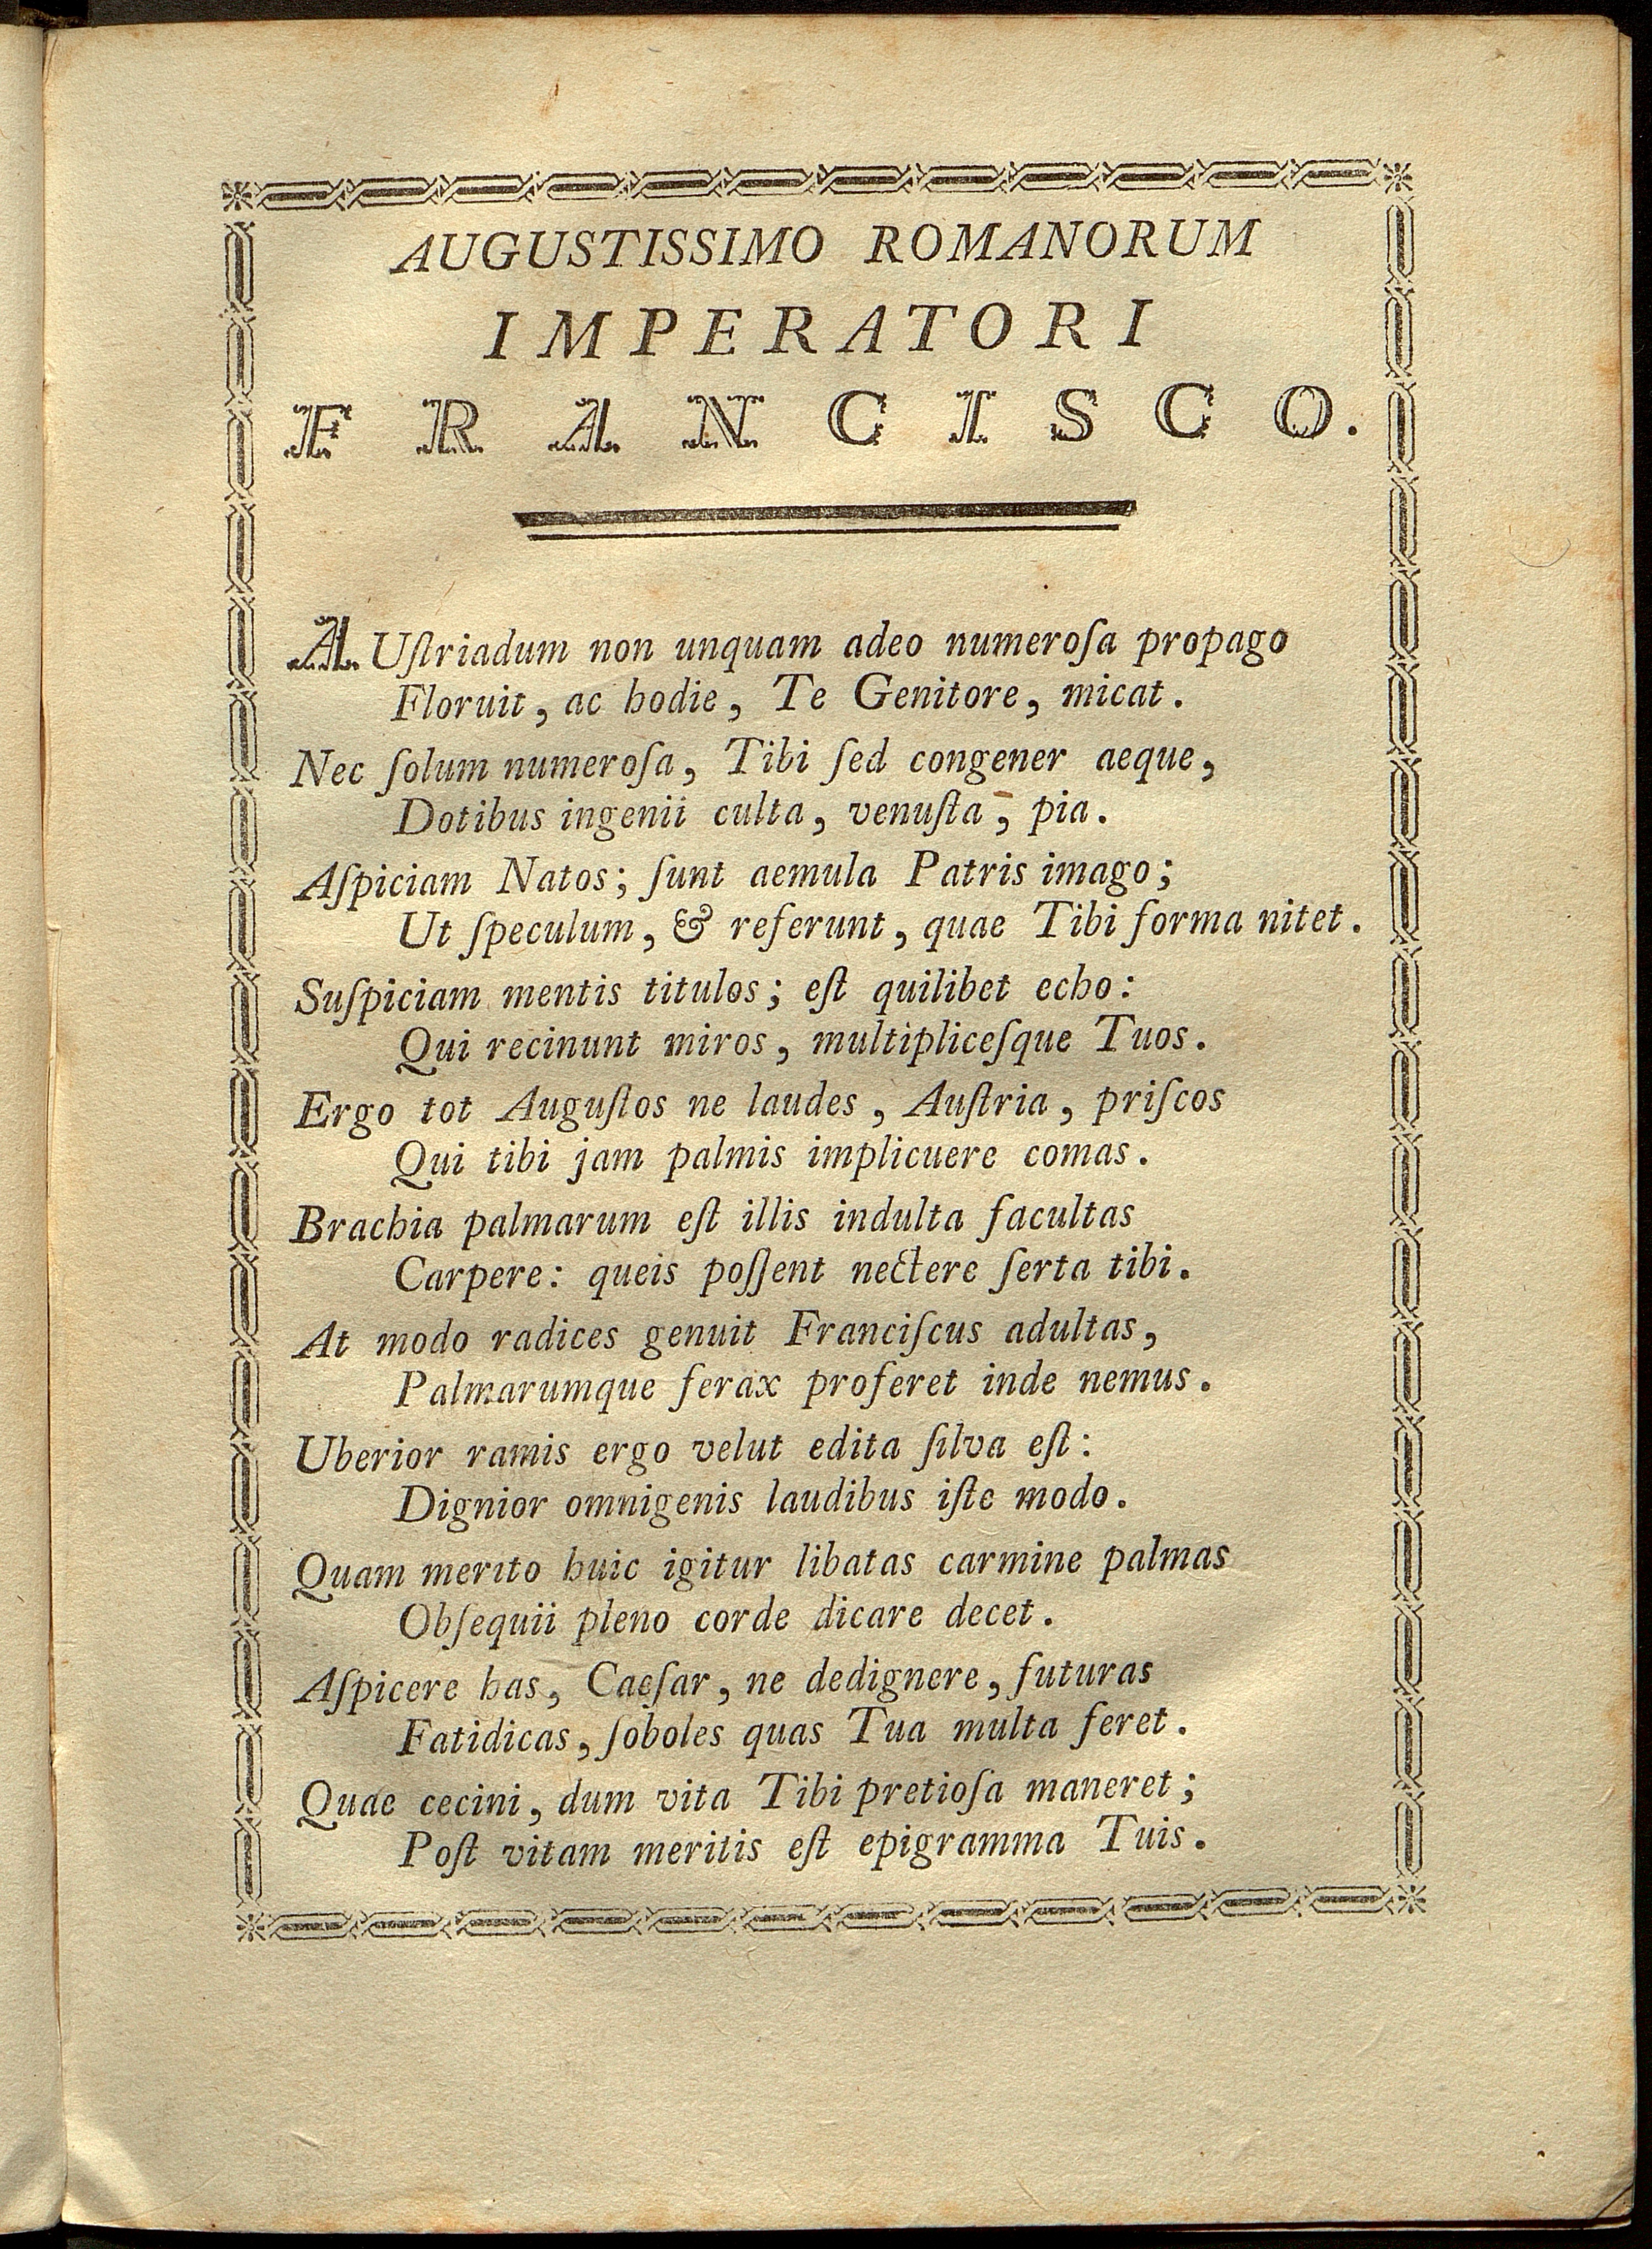 AUGUSTISSIMO ROMANORUM
IMPERATORI
FRANCISCO.
AUſtriadum non unquam adeo numeroſa propago
Floruit, ac hodie, Te Genitore, micat.
Nec ſolum numeroſa, Tibi ſed congener aeque,
Dotibus ingenii culta, venuſta, pia.
Aſpiciam Natos; ſunt aemula Patris imago;
Ut ſpeculum, & referunt, quae Tibi forma nitet.
Suſpiciam mentis titulos; eſt quilibet echo:
Qui recinunt miros, multipliceſque Tuos.
Ergo tot Auguſtos ne laudes, Auſtria, priſcos
Qui tibi jam palmis implicuere comas.
Brachia palmarum eſt illis indulta facultas
Carpere: queis poſſent nectere ſerta tibi.
At modo radices genuit Franciſcus adultas,
Palmarumque ferax proferet inde nemus.
Uberior ramis ergo velut edita ſilva eſt:
Dignior omnigenis laudibus iſte modo.
Quam merito huic igitur libatas carmine palmas
Obſequii pleno corde dicare decet.
Aſpicere has, Caeſar, ne dedignere, futuras
Fatidicas, ſoboles quas Tua multa feret.
Quae cecini, dum vita Tibi pretioſa maneret;
Poſt vitam meritis eſt epigramma Tuis.